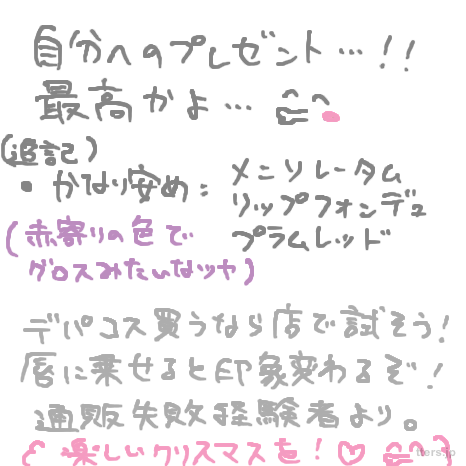 自分へのプレゼント…!!
最高かよ…
(追記)
・かなり安め:メンソレータム
リップフォンデュ
プラムレッド
(赤寄りの色で
グロスみたいなツヤ)
デパコス買うなら店で試そう!
唇に乗せると印象変わるぞ!
通販失敗経験者より。
楽しいクリスマスを!♡